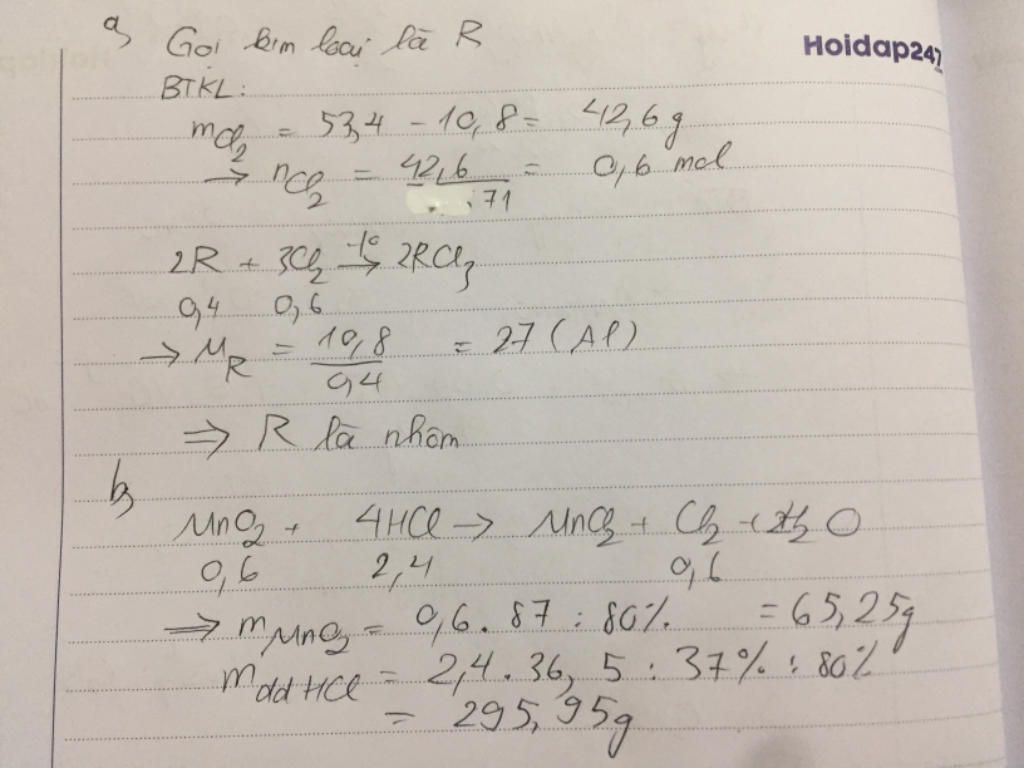 a) Gọi kim loại là R
Hoidap247
BTKL:
mCl2 = 53,4 - 10,8 = 42,6g
→ nCl2 = 42,6/71 = 0,6 mol
2R + 3Cl2 -t°→ 2RCl3
0,4 0,6
→ MR = 10,8/0,4 = 27 (Al)
⇒ R là nhôm
b)
MnO2 + 4HCl → MnCl2 + Cl2 + 2H2O
0,6 2,4 0,6
⇒ mMnO2 = 0,6 . 87 : 80% = 65,25g
mddHCl = 2,4 . 36,5 : 37% : 80%
= 295,95g